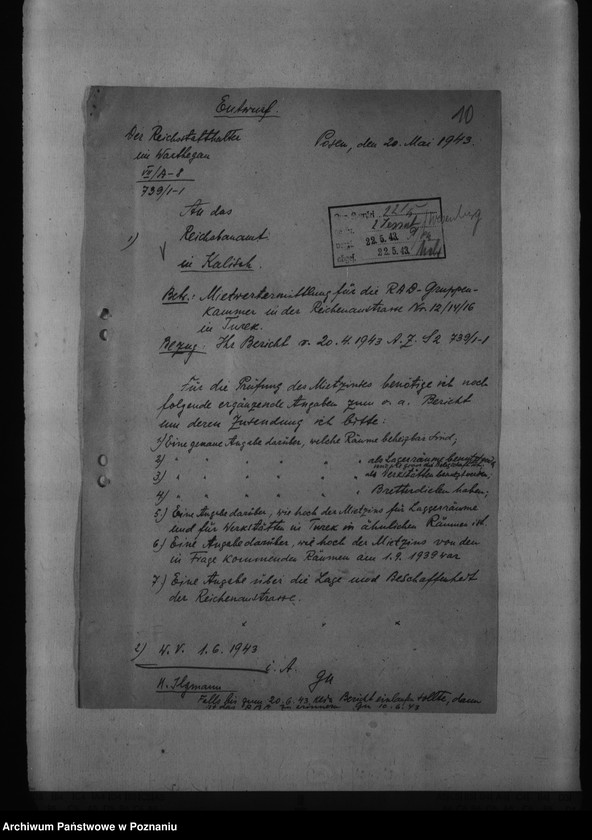 Entwurf.
10
Der Reichsstatthalter
im Warthegau
Posen, den 20. Mai 1943.
VII/A-8
739/1-1
An das
1) Reichsbauamt
in Kalisch.
22.5.43
22.5.43
Betr.: Mietwertermittlung für die RAD-Gruppen-
kammer in der Reichenaustrasse Nr. 12/14/16
in Turek.
Bezug: Ihr Bericht v. 20.4.1943 A.Z. S2 739/1-1
Für die Prüfung des Mietzinses benötige ich noch
folgende ergänzende Angaben zum o. a. Bericht
um deren Zusendung ich bitte:
1) Eine genaue Angabe darüber, welche Räume beheizbar sind;
2) " " " " " als Lagerräume benutzt
3) " " " " " als Werkstätten benutzt werden,
4) " " " " " Bretterdielen haben;
5) Eine Angabe darüber, wie hoch der Mietzins für Laggerräume
und für Werkstätten in Turek in ähnlichen Räumen ist.
6) Eine Angabe darüber, wie hoch der Mietzins von den
in Frage kommenden Räumen am 1.9.1939 war
7) Eine Angabe über die Lage und Beschaffenheit
der Reichenaustrasse.
2) W. V. 1.6.1943
i. A.
H. Ilgmann
Falls bis zum 20.6.43 kein Bericht einlaufen sollte, dann
zu erinnern
Archiwum Państwowe w Poznaniu